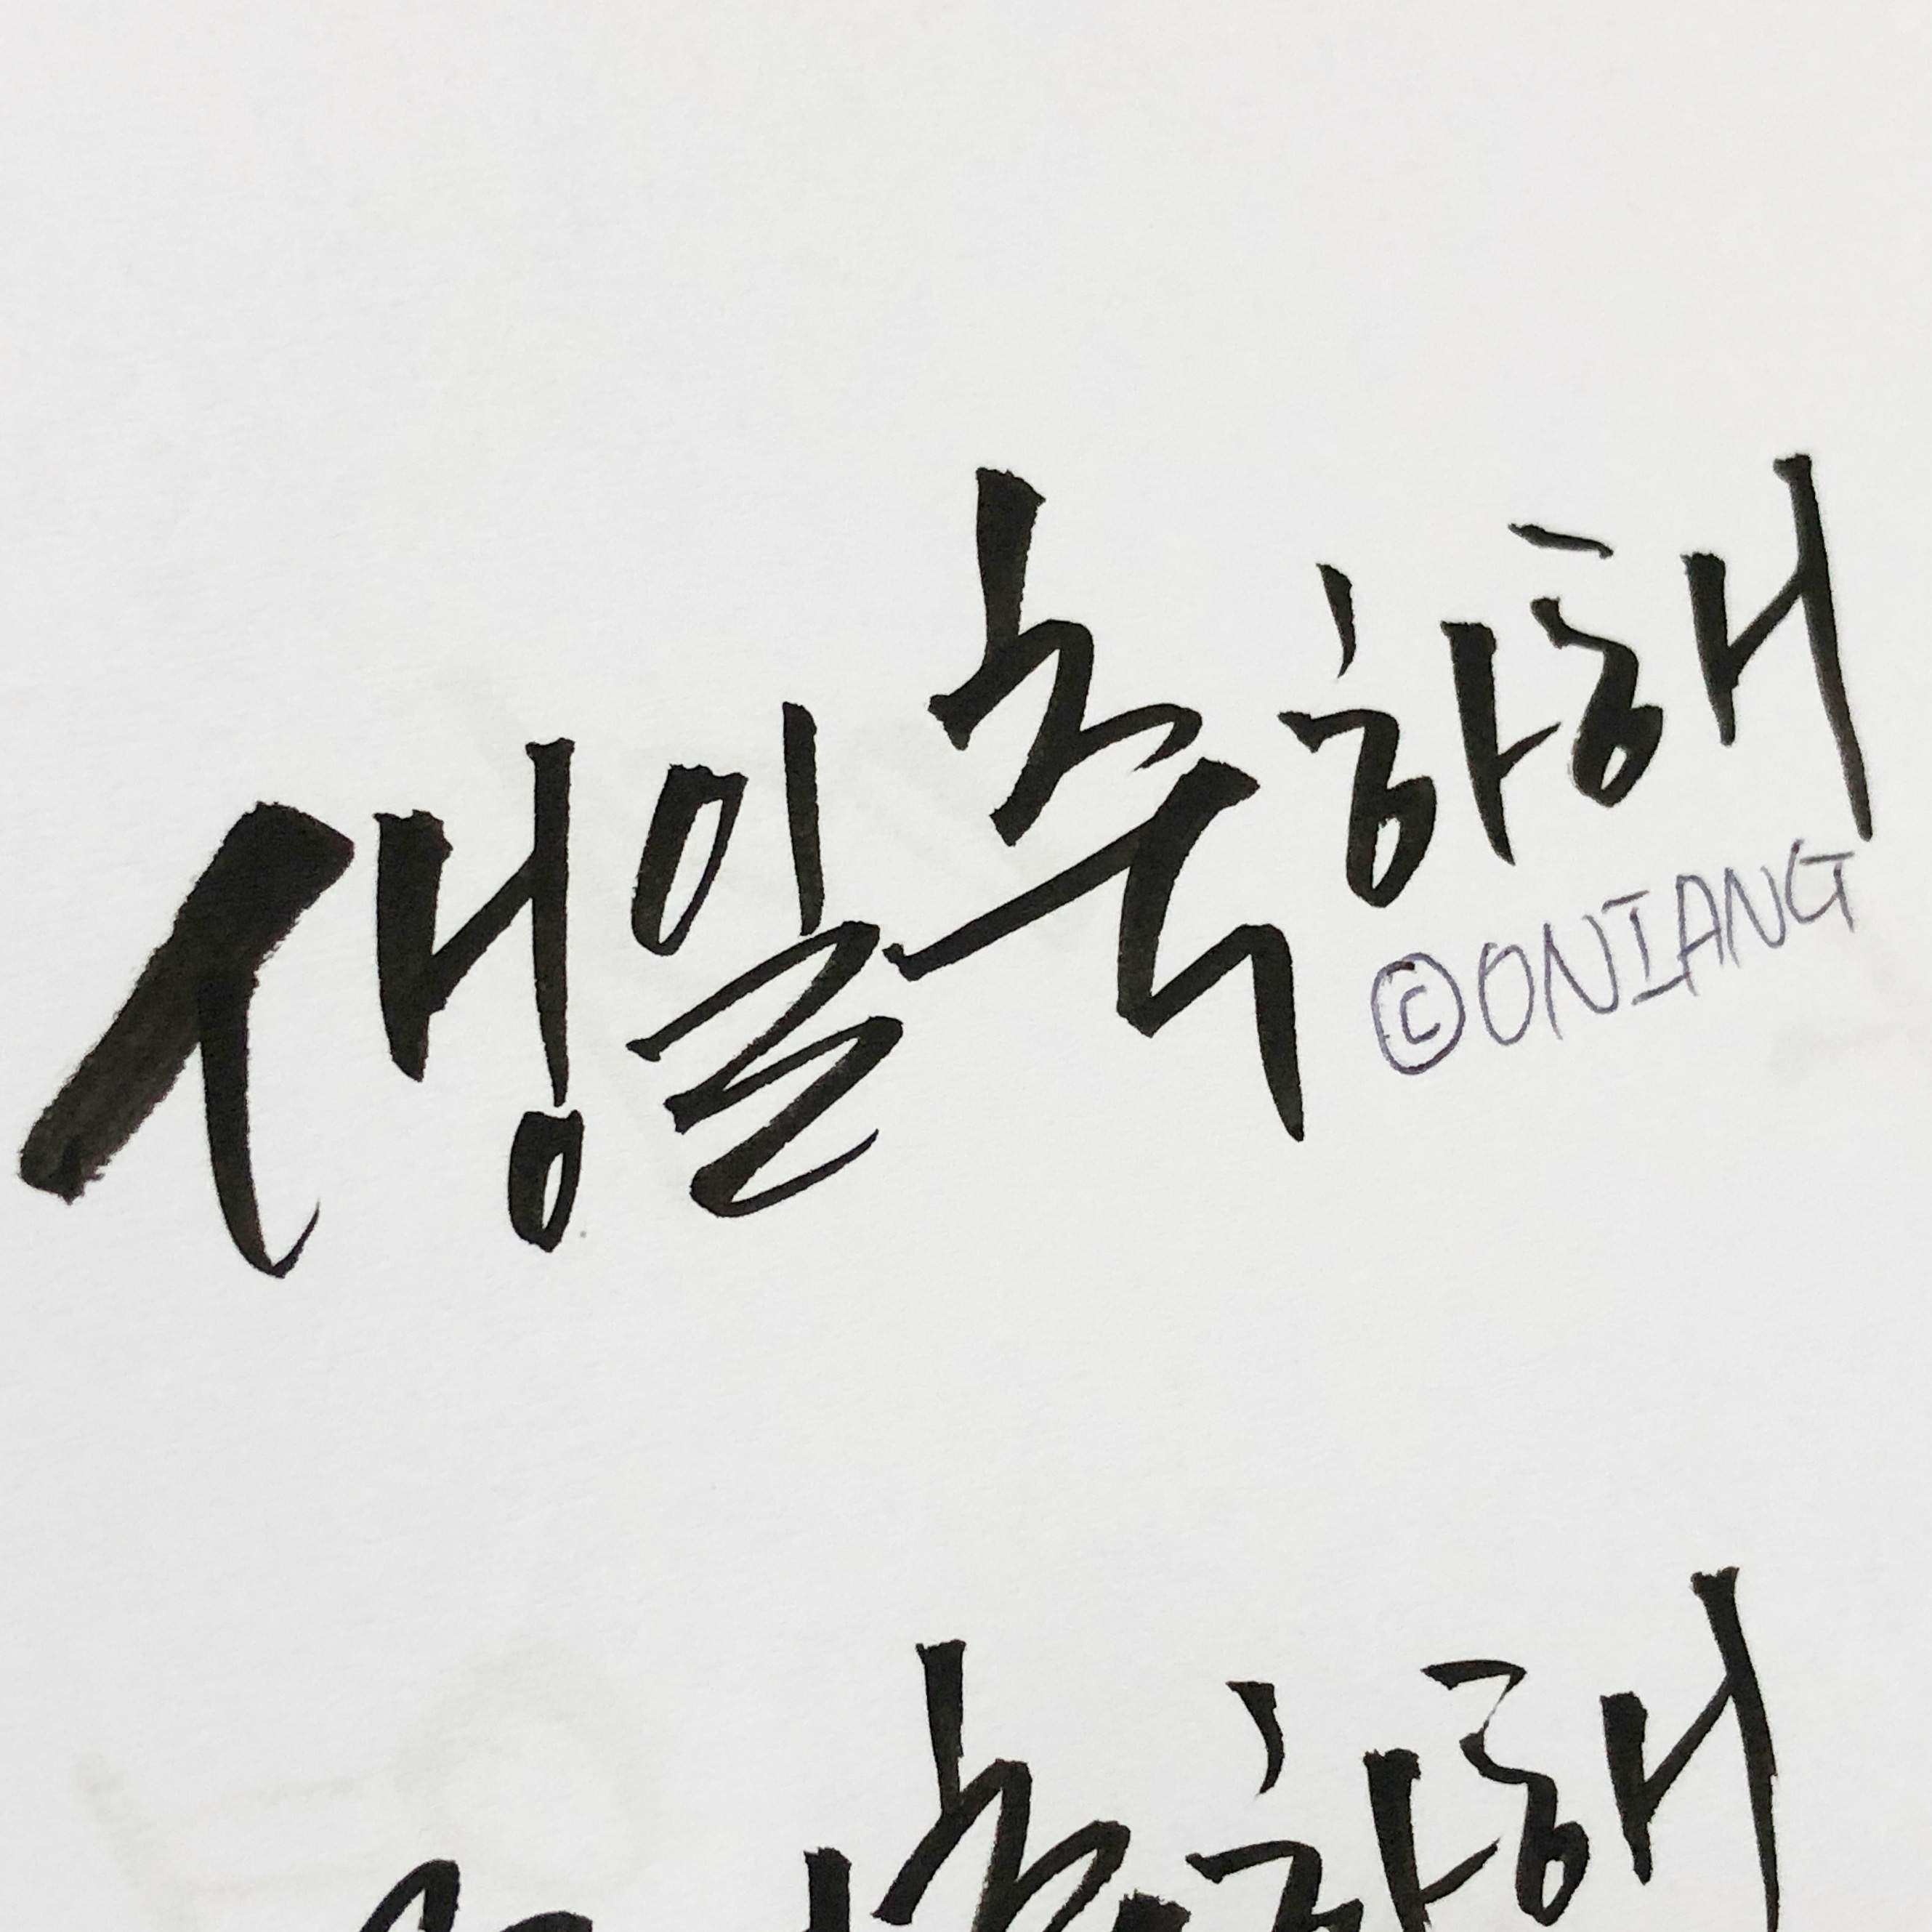 생일 축하해
©ONIANG
축하해